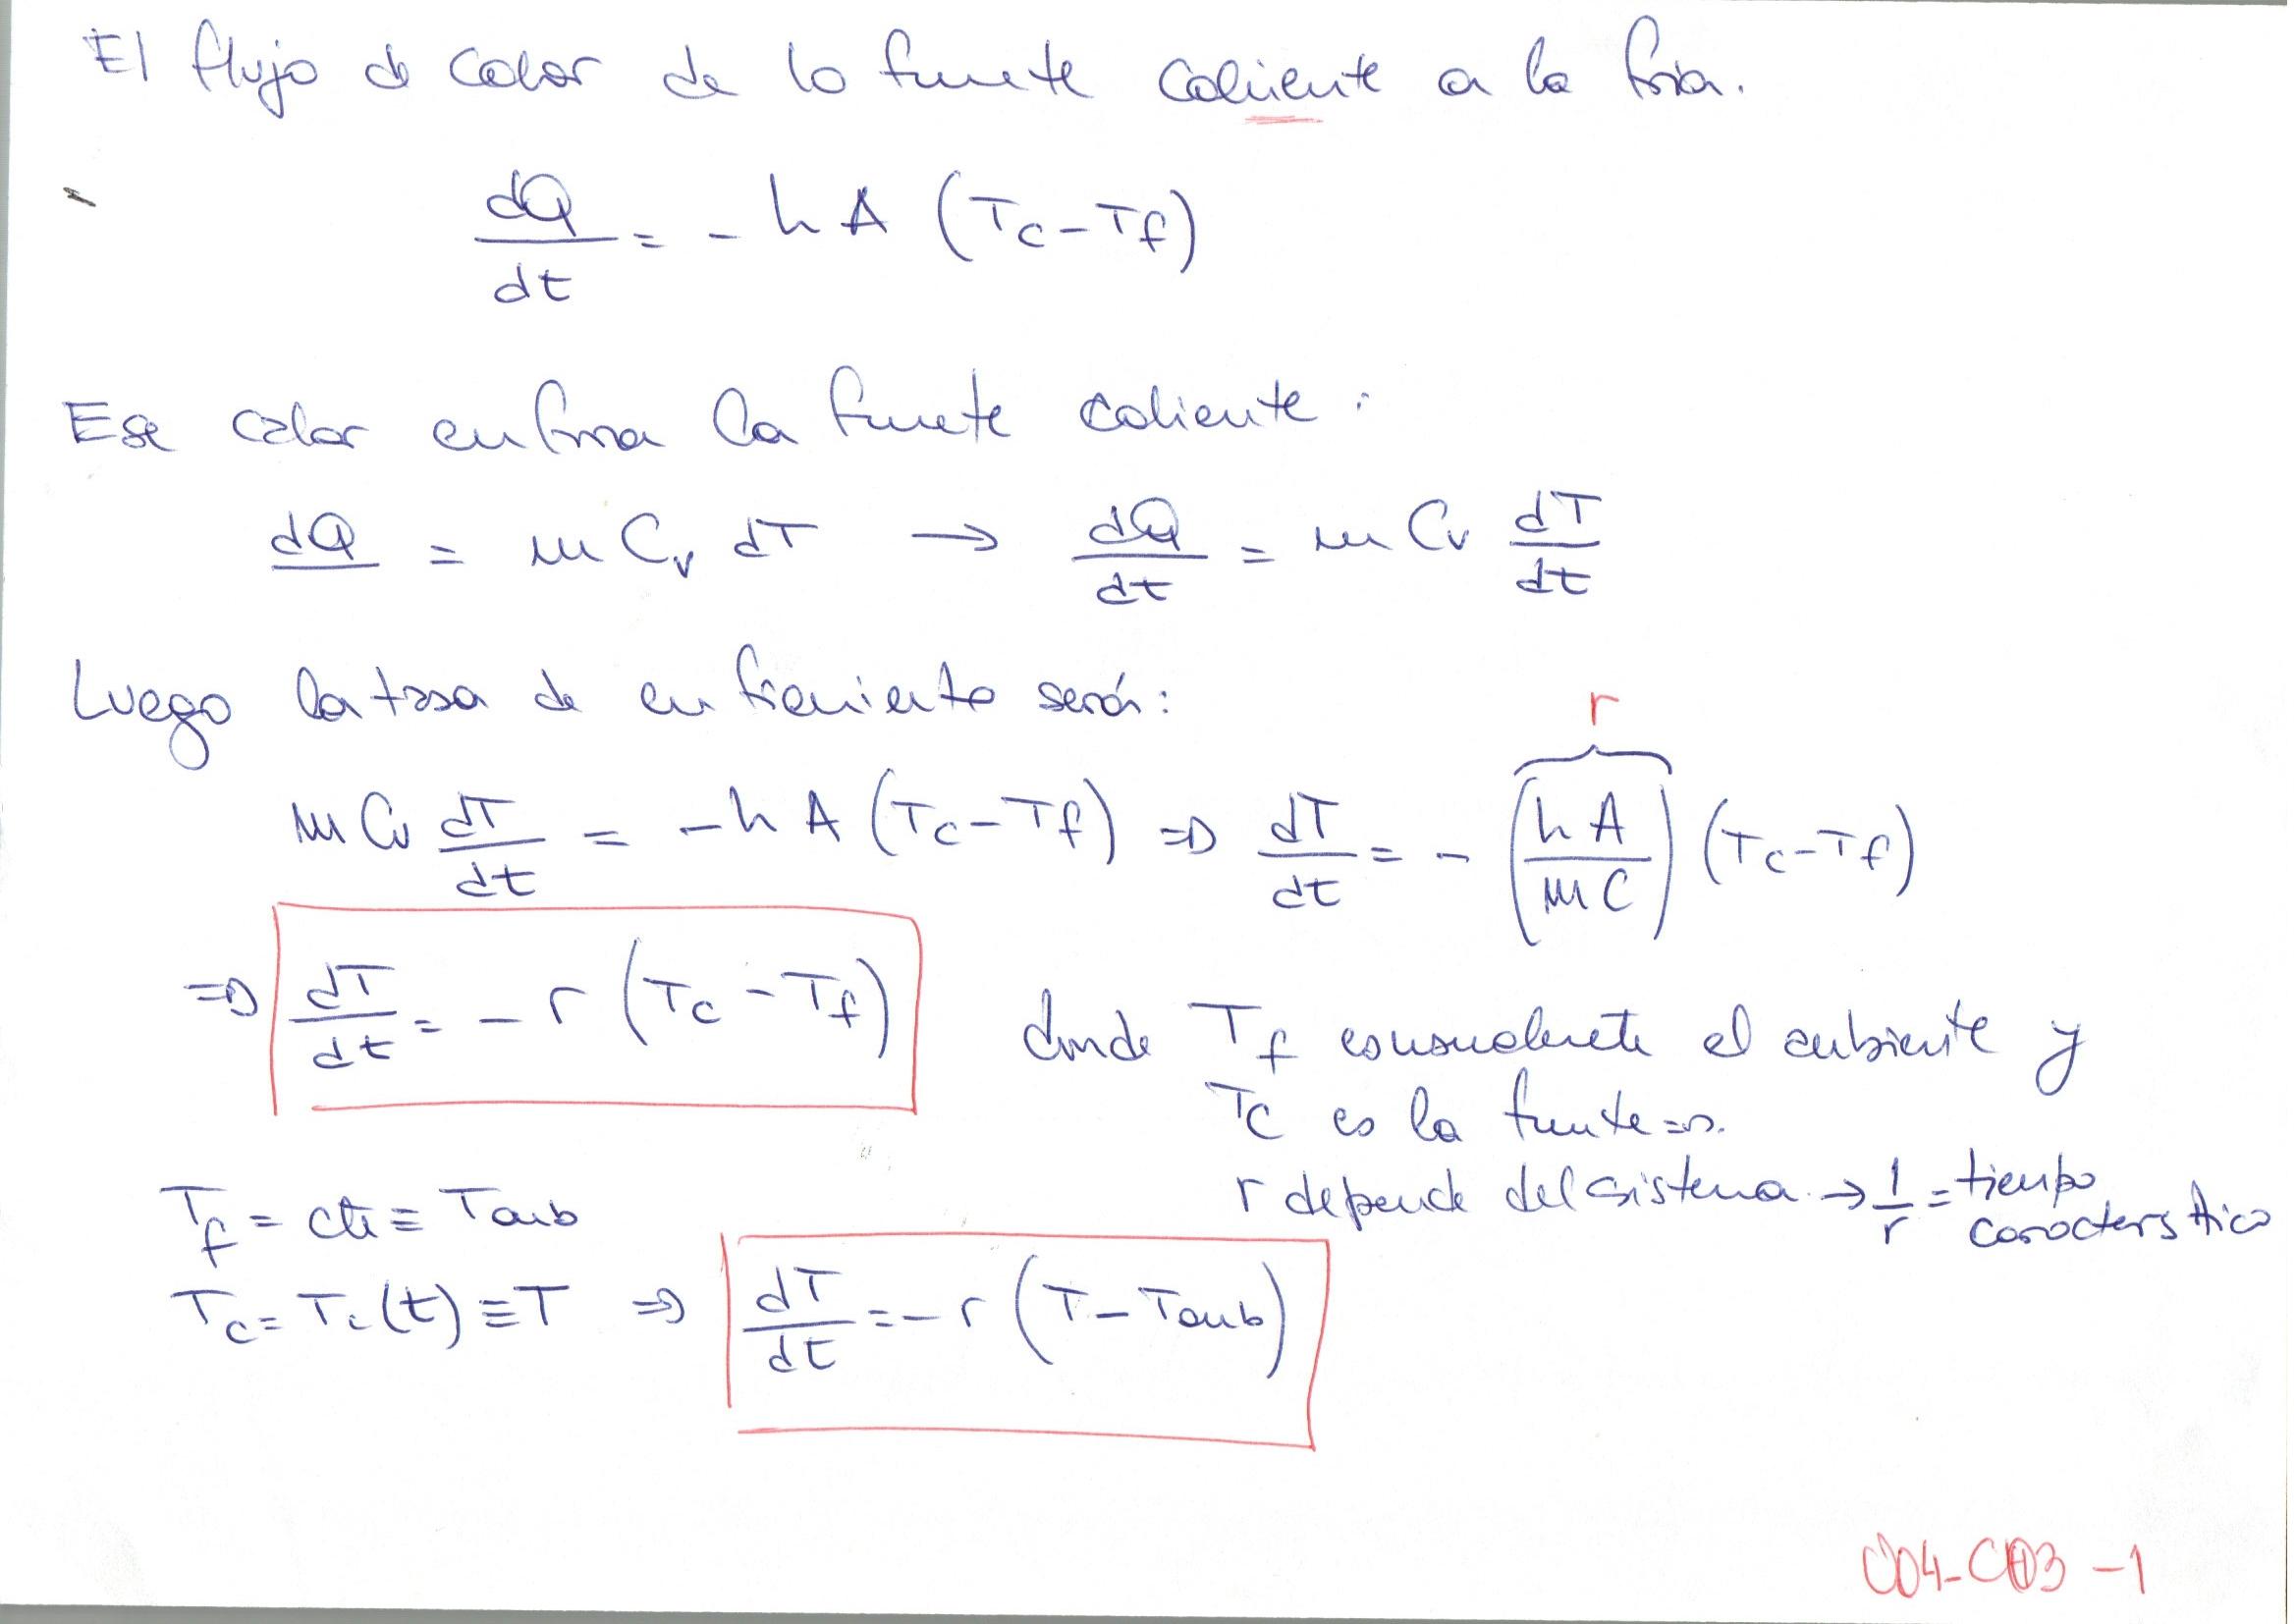 El flujo de calor de la fuente caliente a la fria.
dQ/dt = - h A (Tc - Tf)
Ese calor enfria la fuente caliente:
dQ = m Cv dT → dQ/dt = m Cv dT/dt
Luego la tasa de enfriamiento será:
r
m Cv dT/dt = - h A (Tc - Tf) ⇒ dT/dt = - (hA/mC) (Tc - Tf)
⇒ dT/dt = - r (Tc - Tf) donde Tf es usualmente el ambiente y
Tc es la fuente ⇒.
r depende del sistema → 1/r = tiempo característico
Tf = cte ≡ Tamb
Tc = Tc(t) ≡ T ⇒ dT/dt = - r (T - Tamb)
-1